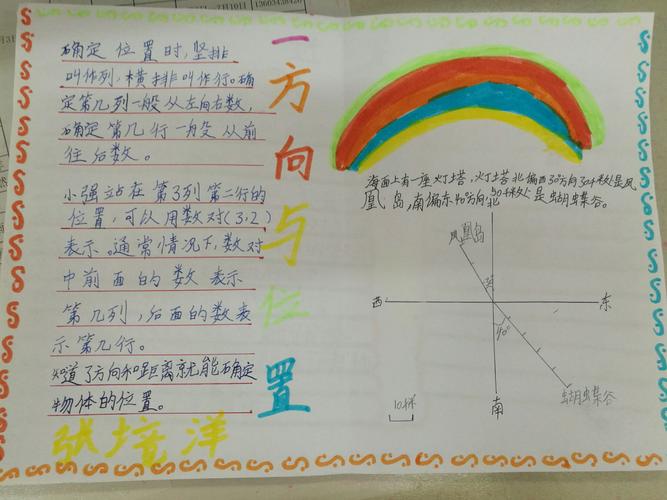 确定位置时,竖排
叫作列,横排叫作行。确
定第几列一般从左向右数,
确定第几行一般从前
往后数。
小强站在第3列第二行的
位置,可以用数对(3,2)
表示。通常情况下,数对
中前面的数表示
第几列,后面的数表
示第几行。
知道了方向和距离就能确定
物体的位置。
张境洋
一方向与位置
海面上有一座灯塔,灯塔北偏西30°方向30千米处是凤
凰岛,南偏东40°方向50千米处是蝴蝶谷。
凤凰岛
30°
西
东
40°
南
蝴蝶谷
10千米